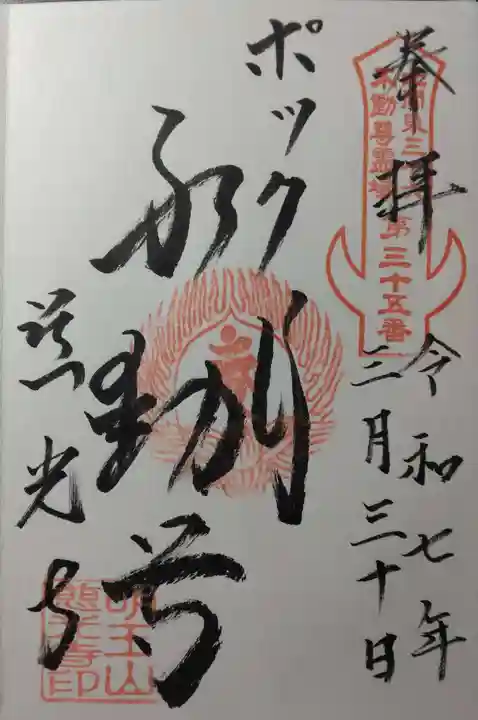 奉拝
北関東三十六
不動尊霊場
第三十五番
令和七年
三月三十日
ポックリ
不動尊
慈光寺
明王山
慈光寺印